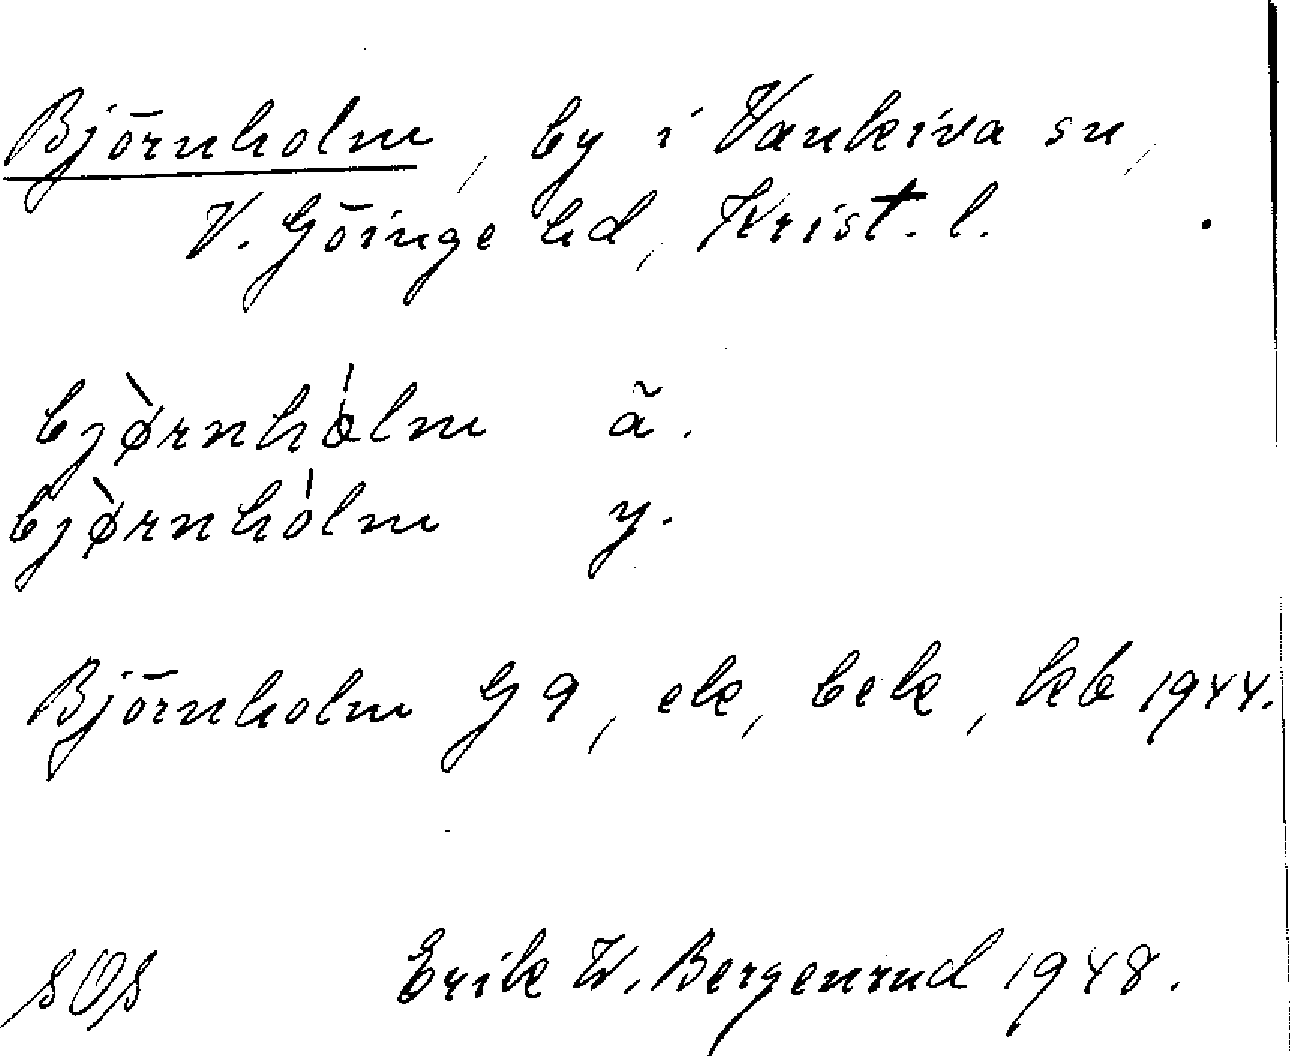 Björnholm, by i Vankiva sn,
V. Göinge hd, Krist. l.
bjø̀rnhólm ä.
bjø̀rnhólm y.
Björnholm G 9, ek, bek, kb 1944.
SOS Erik W. Bergenrud 1948.